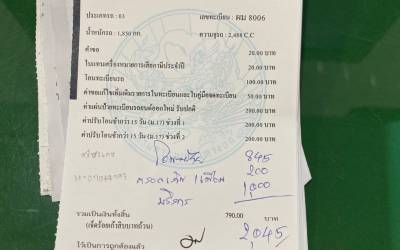 ประเภทรถ : 03 เลขทะเบียน : ผม 8006
น้ำหนักรถ : 1,850 กก. ความจุรถ : 2,488 C.C
ค่าขอ 20.00 บาท
ใบแทนเครื่องหมายการเสียภาษีประจำปี 20.00 บาท
โอนทะเบียนรถ 100.00 บาท
ค่าขอแก้ไขเพิ่มเติมรายการในทะเบียนและใบคู่มือจดทะเบียน 50.00 บาท
ค่าแผ่นป้ายทะเบียนรถยนต์ออกใหม่ รับปกติ 200.00 บาท
ค่าปรับโอนช้ากว่า 15 วัน (ม.17) ช่วงที่ 1 200.00 บาท
ค่าปรับโอนช้ากว่า 15 วัน (ม.17) ช่วงที่ 2 200.00 บาท
845
200
บริการ 1,000
รวมเป็นเงินทั้งสิ้น 790.00 บาท
(เจ็ดร้อยเก้าสิบบาทถ้วน) 2,045
ไว้เป็นการถูกต้องแล้ว